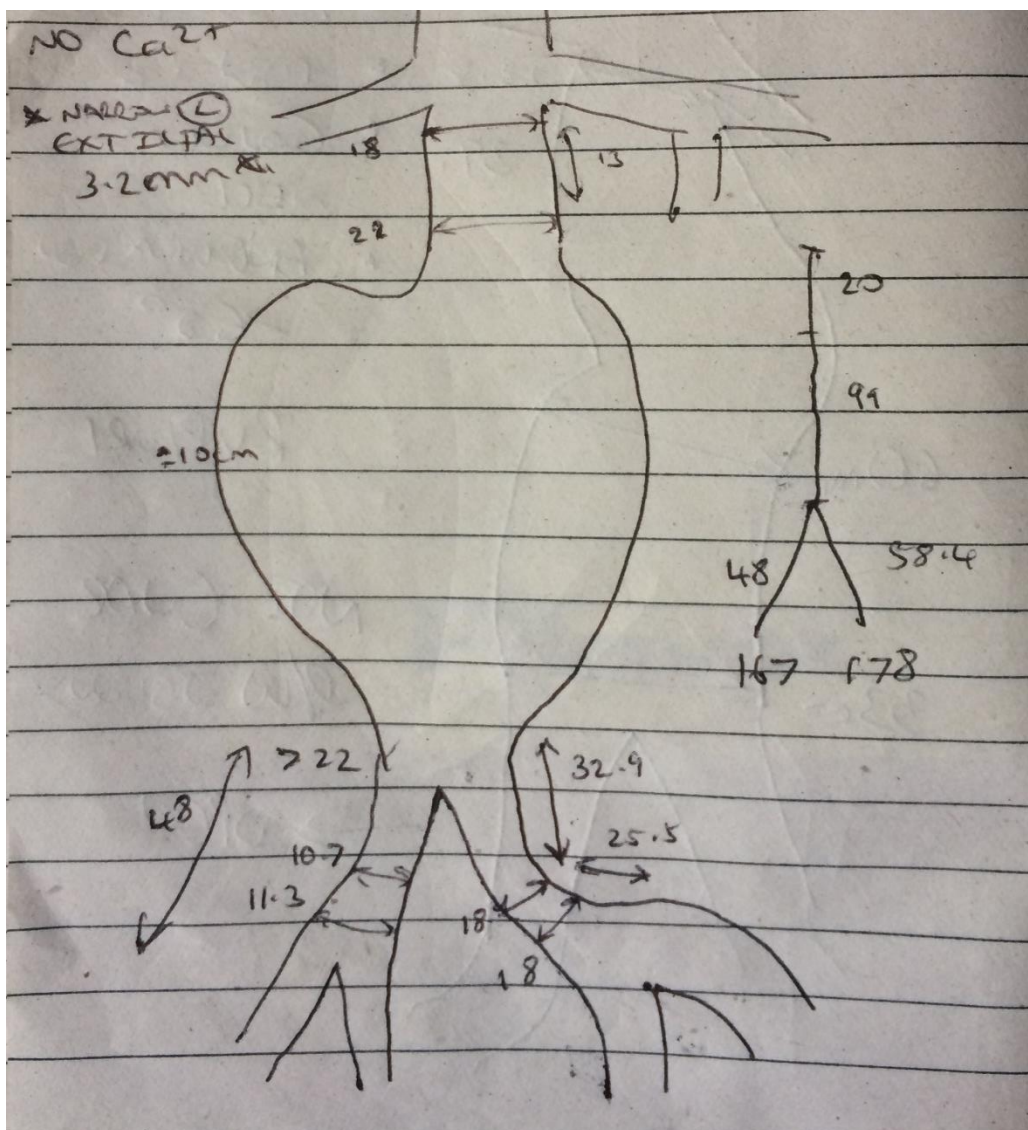 NO Ca2+
* NARROW (L)
EXT
3.2mm *
18
13
22
20
99
±10cm
48
58.4
167 178
>22
32.9
48
25.5
10.7
11.3
18
18